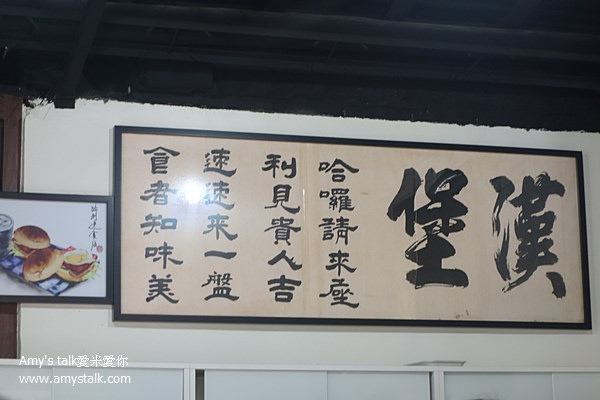 漢堡
哈囉請來座
利見貴人吉
速速來一盤
食者知味美
Amy's talk愛米愛你
www.amystalk.com